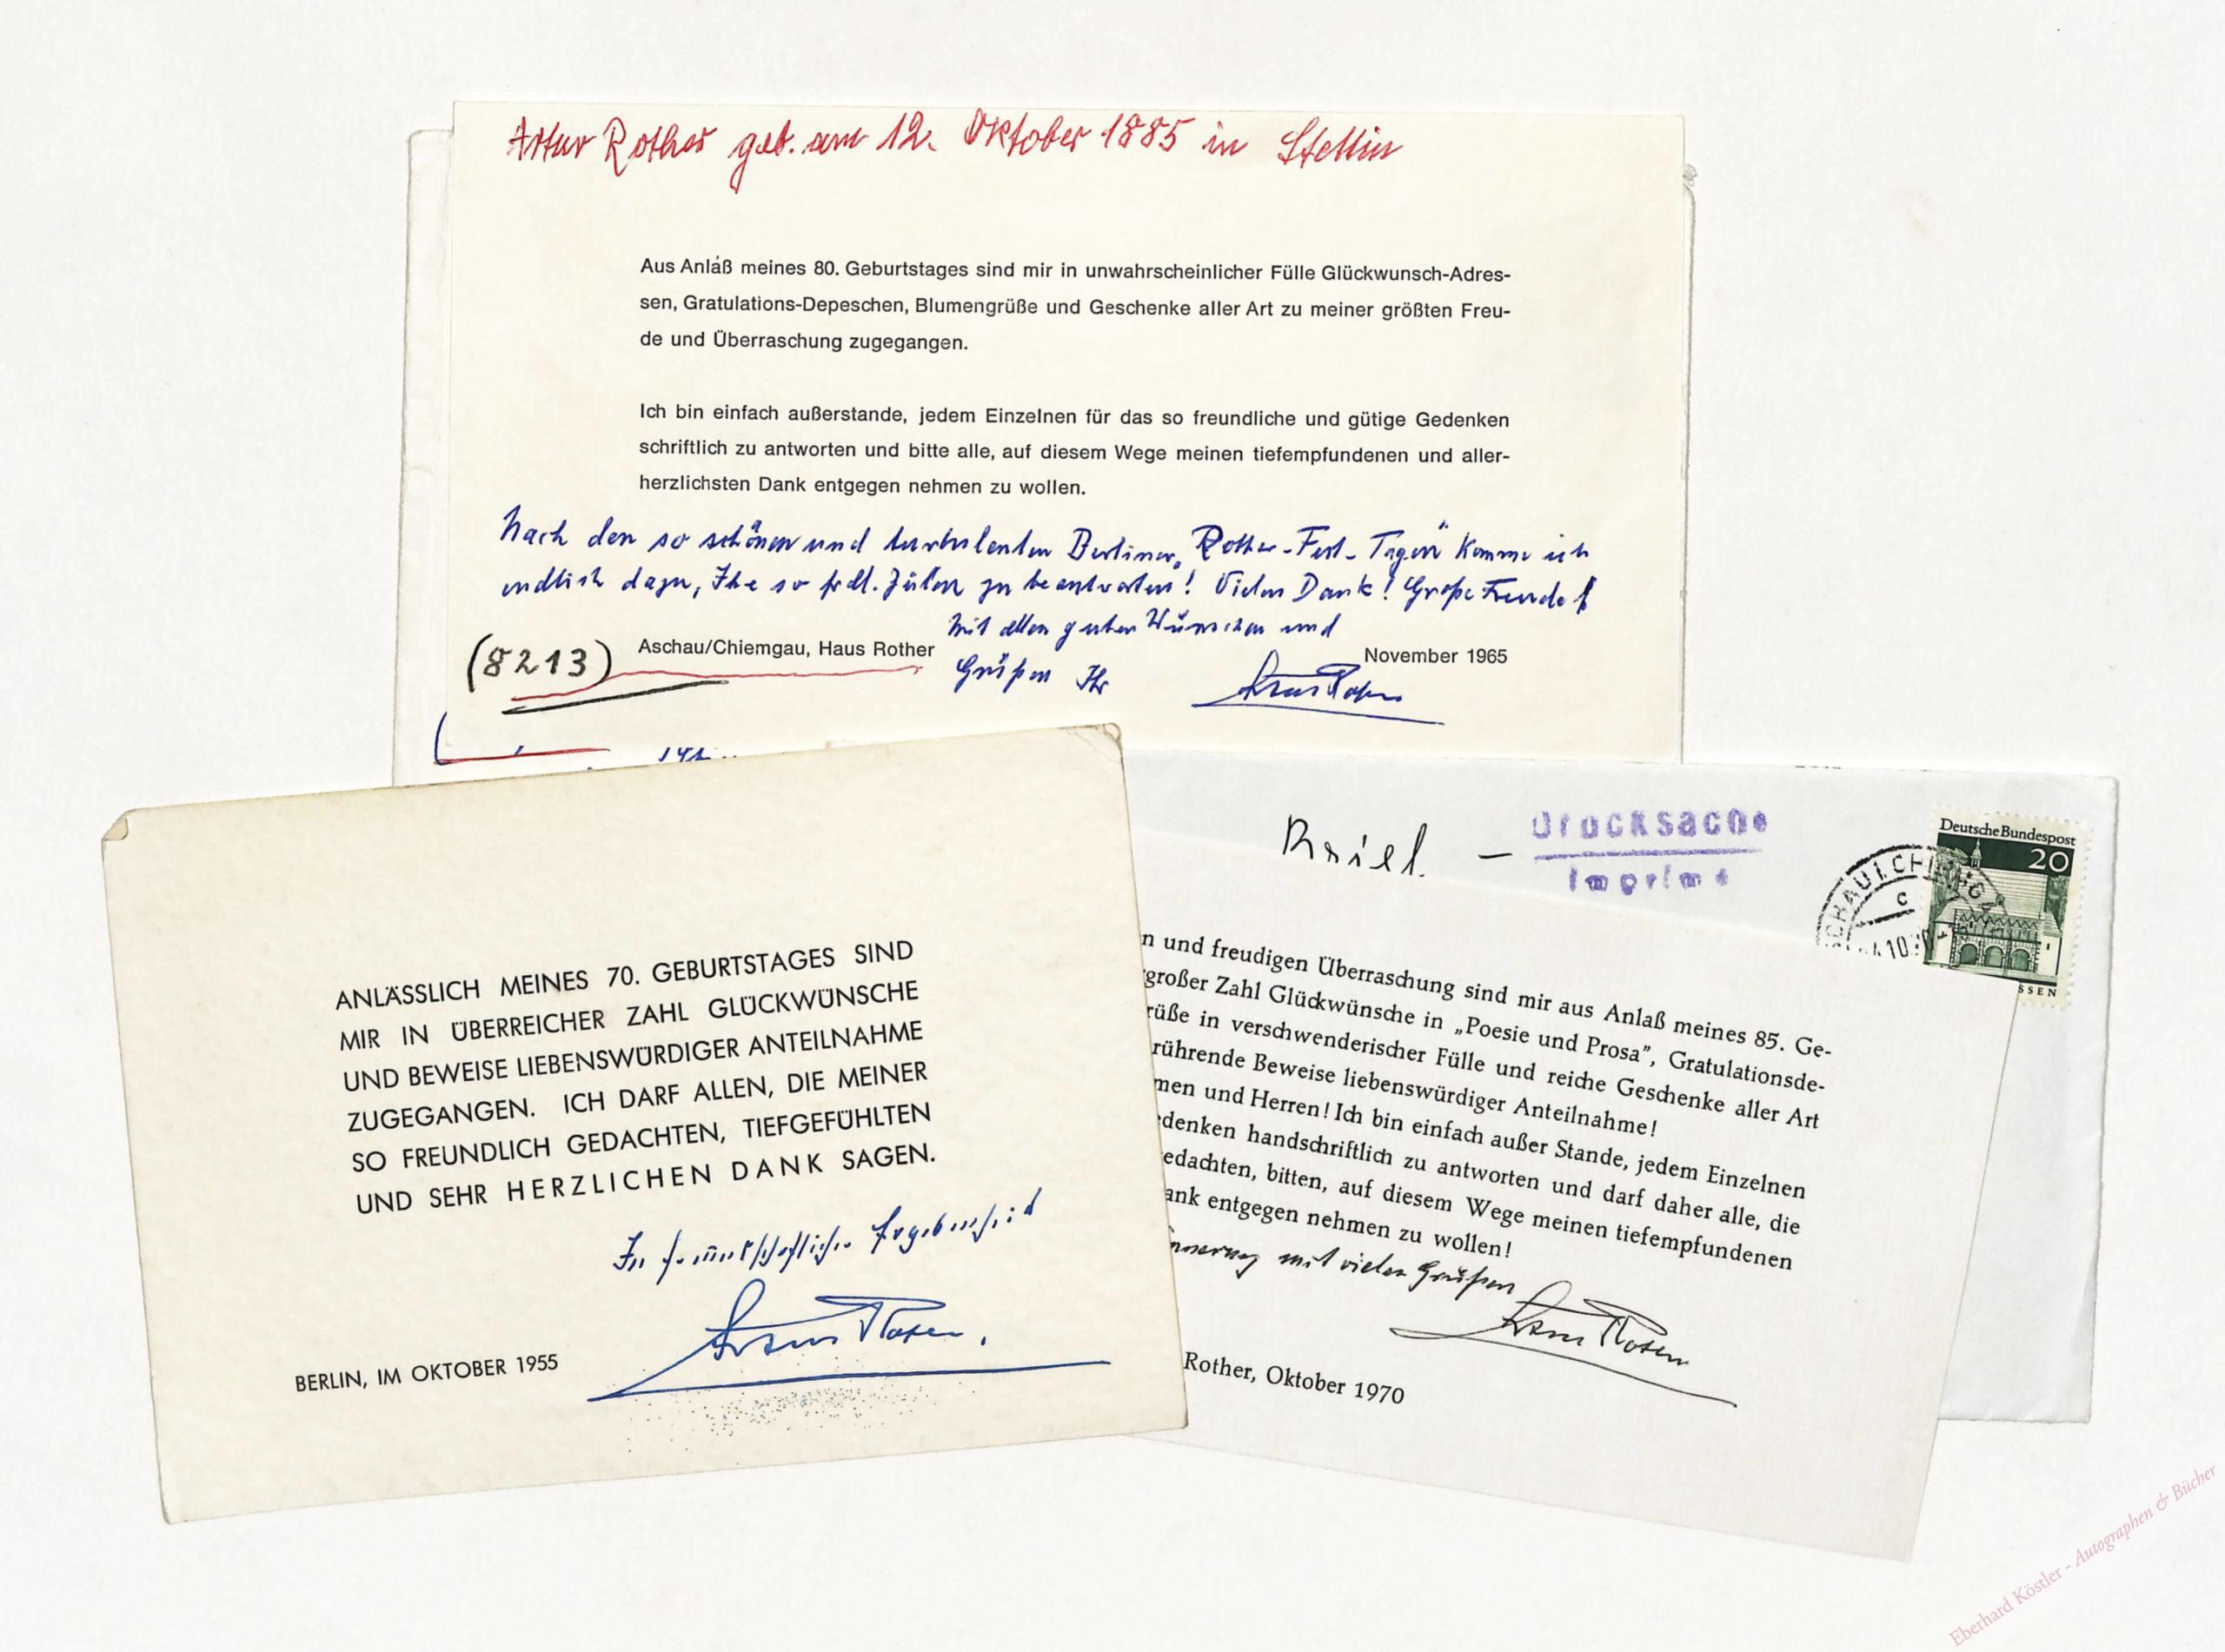 Artur Rother geb. am 12. Oktober 1885 in Stettin
Aus Anlaß meines 80. Geburtstages sind mir in unwahrscheinlicher Fülle Glückwunsch-Adres-
sen, Gratulations-Depeschen, Blumengrüße und Geschenke aller Art zu meiner größten Freu-
de und Überraschung zugegangen.
Ich bin einfach außerstande, jedem Einzelnen für das so freundliche und gütige Gedenken
schriftlich zu antworten und bitte alle, auf diesem Wege meinen tiefempfundenen und aller-
herzlichsten Dank entgegen nehmen zu wollen.
Nach den so schönen und turbulenten Berliner „Rother-Fest-Tagen" komme ich
endlich dazu, Ihre so frdl. Zeilen zu beantworten! Vielen Dank! Große Freude!
Mit allen guten Wünschen und
Grüßen Ihr
Artur Rother
(8213) Aschau/Chiemgau, Haus Rother
November 1965
ANLÄSSLICH MEINES 70. GEBURTSTAGES SIND
MIR IN ÜBERREICHER ZAHL GLÜCKWÜNSCHE
UND BEWEISE LIEBENSWÜRDIGER ANTEILNAHME
ZUGEGANGEN. ICH DARF ALLEN, DIE MEINER
SO FREUNDLICH GEDACHTEN, TIEFGEFÜHLTEN
UND SEHR HERZLICHEN DANK SAGEN.
In freundschaftlicher Ergebenheit
Artur Rother.
BERLIN, IM OKTOBER 1955
Drucksache
Imprimé
Deutsche Bundespost
20
SSEN
n und freudigen Überraschung sind mir aus Anlaß meines 85. Ge-
großer Zahl Glückwünsche in „Poesie und Prosa", Gratulationsde-
rüße in verschwenderischer Fülle und reiche Geschenke aller Art
rührende Beweise liebenswürdiger Anteilnahme!
men und Herren! Ich bin einfach außer Stande, jedem Einzelnen
denken handschriftlich zu antworten und darf daher alle, die
edachten, bitten, auf diesem Wege meinen tiefempfundenen
ank entgegen nehmen zu wollen!
mit vielen Grüßen
Artur Rother
Rother, Oktober 1970
Eberhard Köstler - Autographen & Bücher